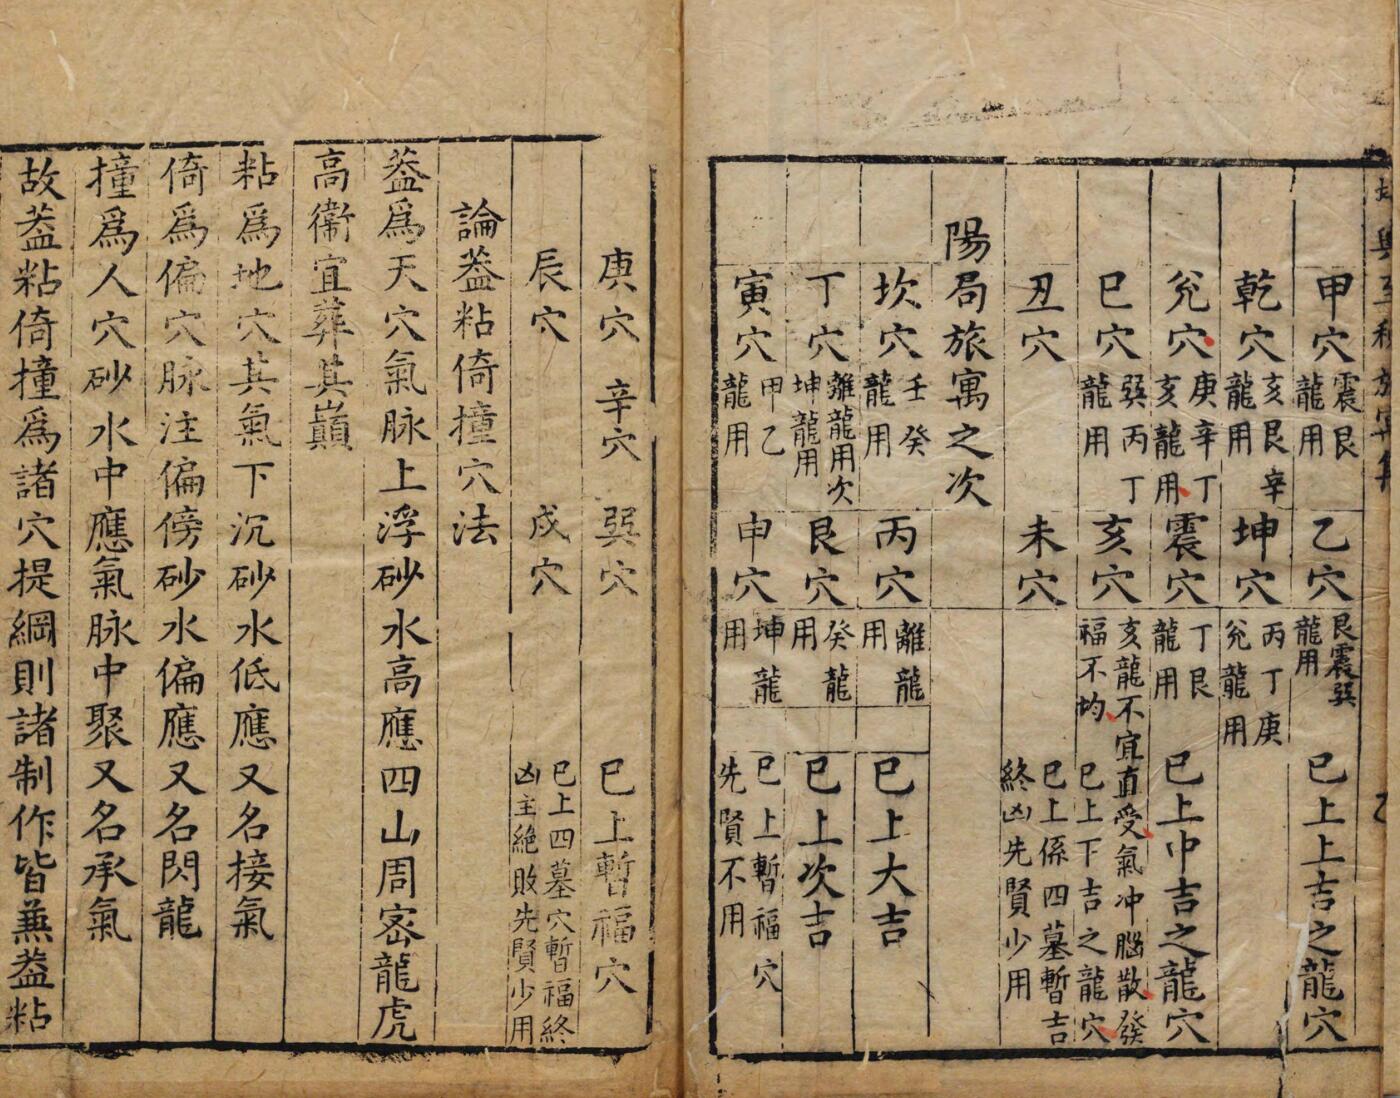 輿至秘旅寓集
甲穴 震艮龍用 乙穴 艮震巽龍用 巳上上吉之龍穴
乾穴 亥艮辛龍用 坤穴 丙丁庚兊龍用
兊穴 庚辛丁亥龍用 震穴 丁艮龍用 巳上中吉之龍穴
巳穴 巽丙丁龍用 亥穴 亥龍不宜直受氣冲腦散發福不均 巳上下吉之龍穴
丑穴 未穴 巳上係四墓暫吉終凶先賢少用
陽局旅寓之次
坎穴 壬癸龍用 丙穴 離龍用 巳上大吉
丁穴 離龍用次坤龍用 艮穴 癸龍用 巳上次吉
寅穴 甲乙龍用 申穴 坤龍用 巳上暫福穴先賢不用
庚穴 辛穴 巽穴 巳上暫福穴
辰穴 戌穴 巳上四墓穴暫福終凶主絶敗先賢少用
論葢粘倚撞穴法
葢爲天穴氣脉上浮砂水高應四山周宻龍虎
高衞宜葬其巔
粘爲地穴其氣下沉砂水低應又名接氣
倚爲偏穴脉注偏傍砂水偏應又名閃龍
撞爲人穴砂水中應氣脉中聚又名承氣
故葢粘倚撞爲諸穴提綱則諸制作皆蒹葢粘